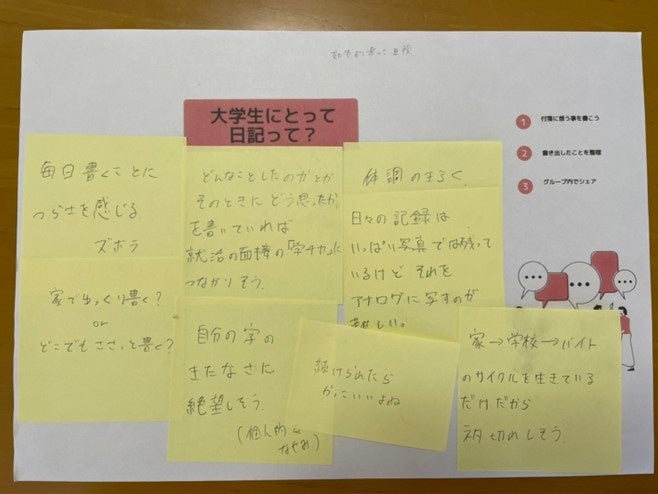 大学生にとって
日記って？
1 付箋に想う事を書こう
2 書き出したことを整理
3 グループ内でシェア
毎日書くことに
つらさを感じる
ズボラ
どんなことしたのかとか
そのときにどう思ったか
を書いていれば
就活の面接の「学チカ」に
つながりそう。
体調のきろく
日々の記録は
いっぱい写真では残って
いるけど それを
アナログに写すのが
難しい。
家でゆっくり書く?
or
どこでもささっと書く?
自分の字の
きたなさに
絶望しそう。
(個人的な
なやみ)
続けられたら
かっこいいよね
家→学校→バイト
のサイクルを生きている
だけだから
ネタ切れしそう。